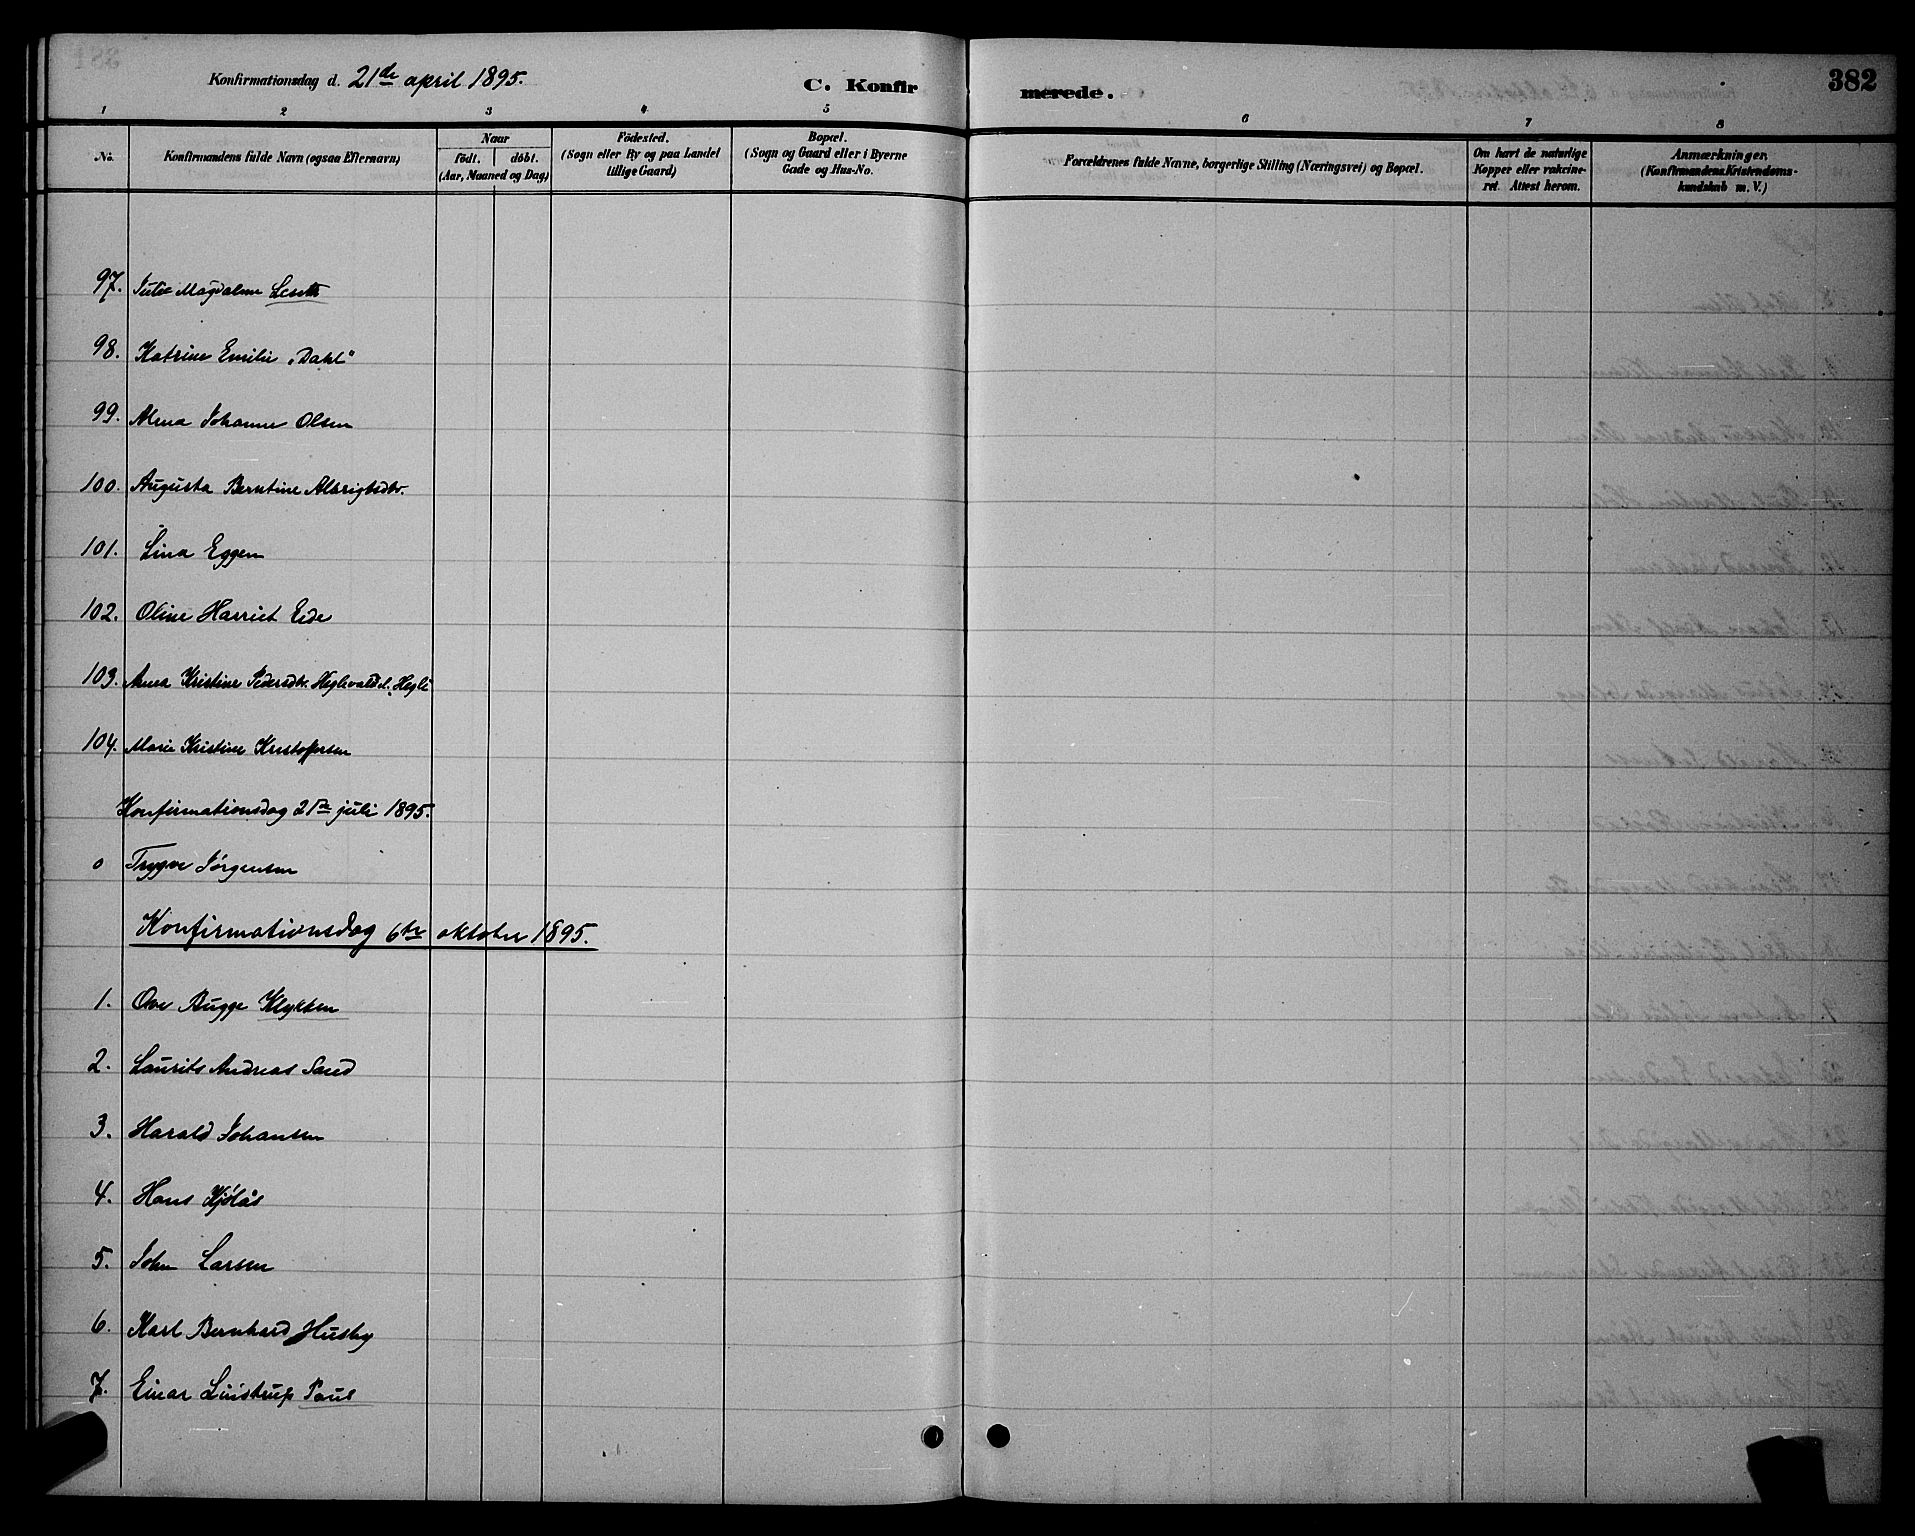 Konfirmationsdag d. 21de april 1895.
C. Konfirmerede.
382
1 2 3 4 5 6 7 8
No.
Konfirmandens fulde Navn (ogsaa Efternavn)
Naar
født. døbt.
(Aar, Maaned og Dag)
Fødested.
(Sogn eller By og paa Landet
tillige Gaard)
Bopæl.
(Sogn og Gaard eller i Byerne
Gade og Hus-No.
Forældrenes fulde Navne, borgerlige Stilling (Næringsvei) og Bopæl.
Om havt de naturlige
Kopper eller vakcine-
ret. Attest herom.
Anmærkninger.
(Konfirmandens Kristendoms-
kundskab m. V.)
97. Magdalene
98. Katrine Emilie „Dahl"
99. Johanne Olsen
100. Augusta Berntine Albrigtsdtr.
101. Lina Eggen
102. Oline Harriet Eide
103. Anna Kristine Pedersdtr.
104. Marie Kristine Kristoffersen
Konfirmationsdag 21de juli 1895.
0 Trygve Jørgensen
Konfirmationsdag 6te oktober 1895.
1. Ove Bugge
2. Laurits Andreas Sand
3. Harald Johansen
4. Hans Kjølås
5. John Larsen
6. Karl Bernhard Husby
7. Einar Lindstrup Paul